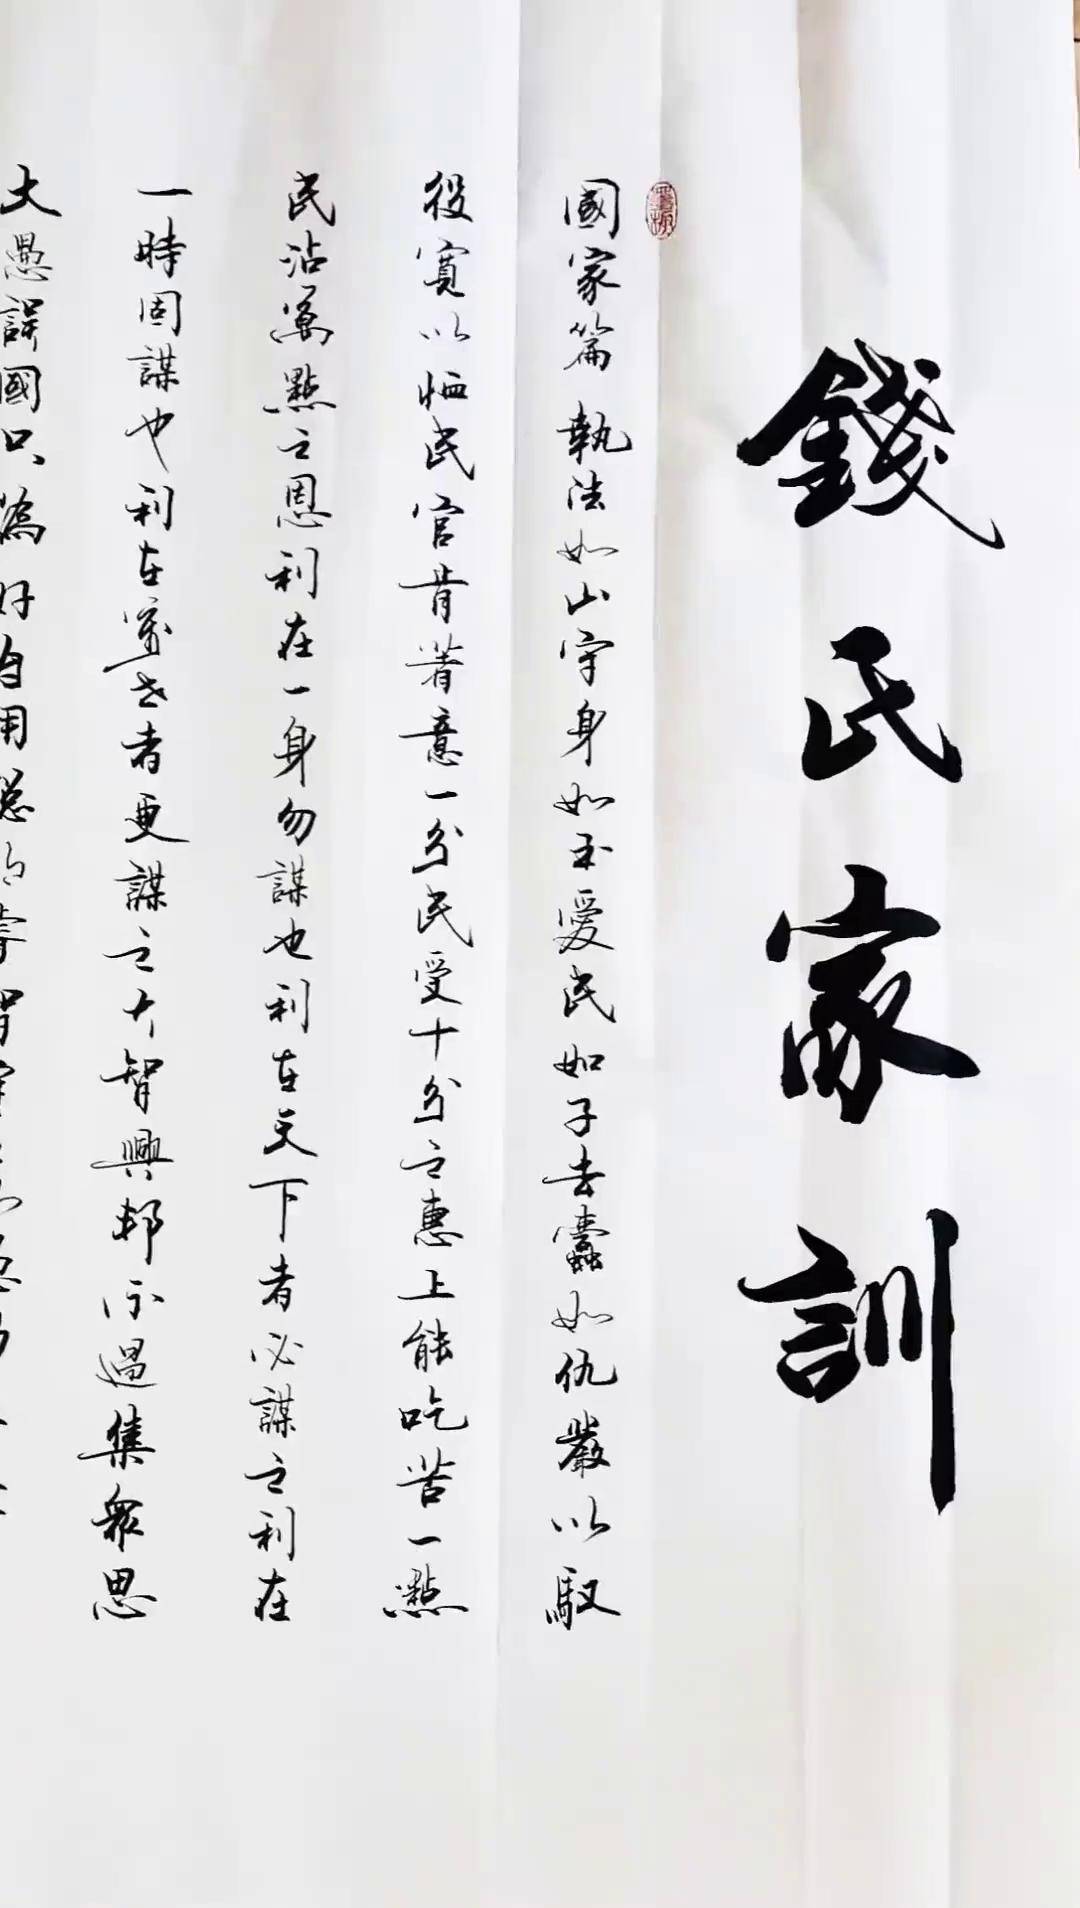 錢氏家訓
國家篇 執法如山守身如玉愛民如子去蠹如仇嚴以馭
役寬以恤民官肯著意一分民受十分之惠上能吃苦一點
民沾萬點之恩利在一身勿謀也利在天下者必謀之利在
一時固謀也利在萬世者更謀之大智興邦不過集眾思
大愚誤國只為好自用聰